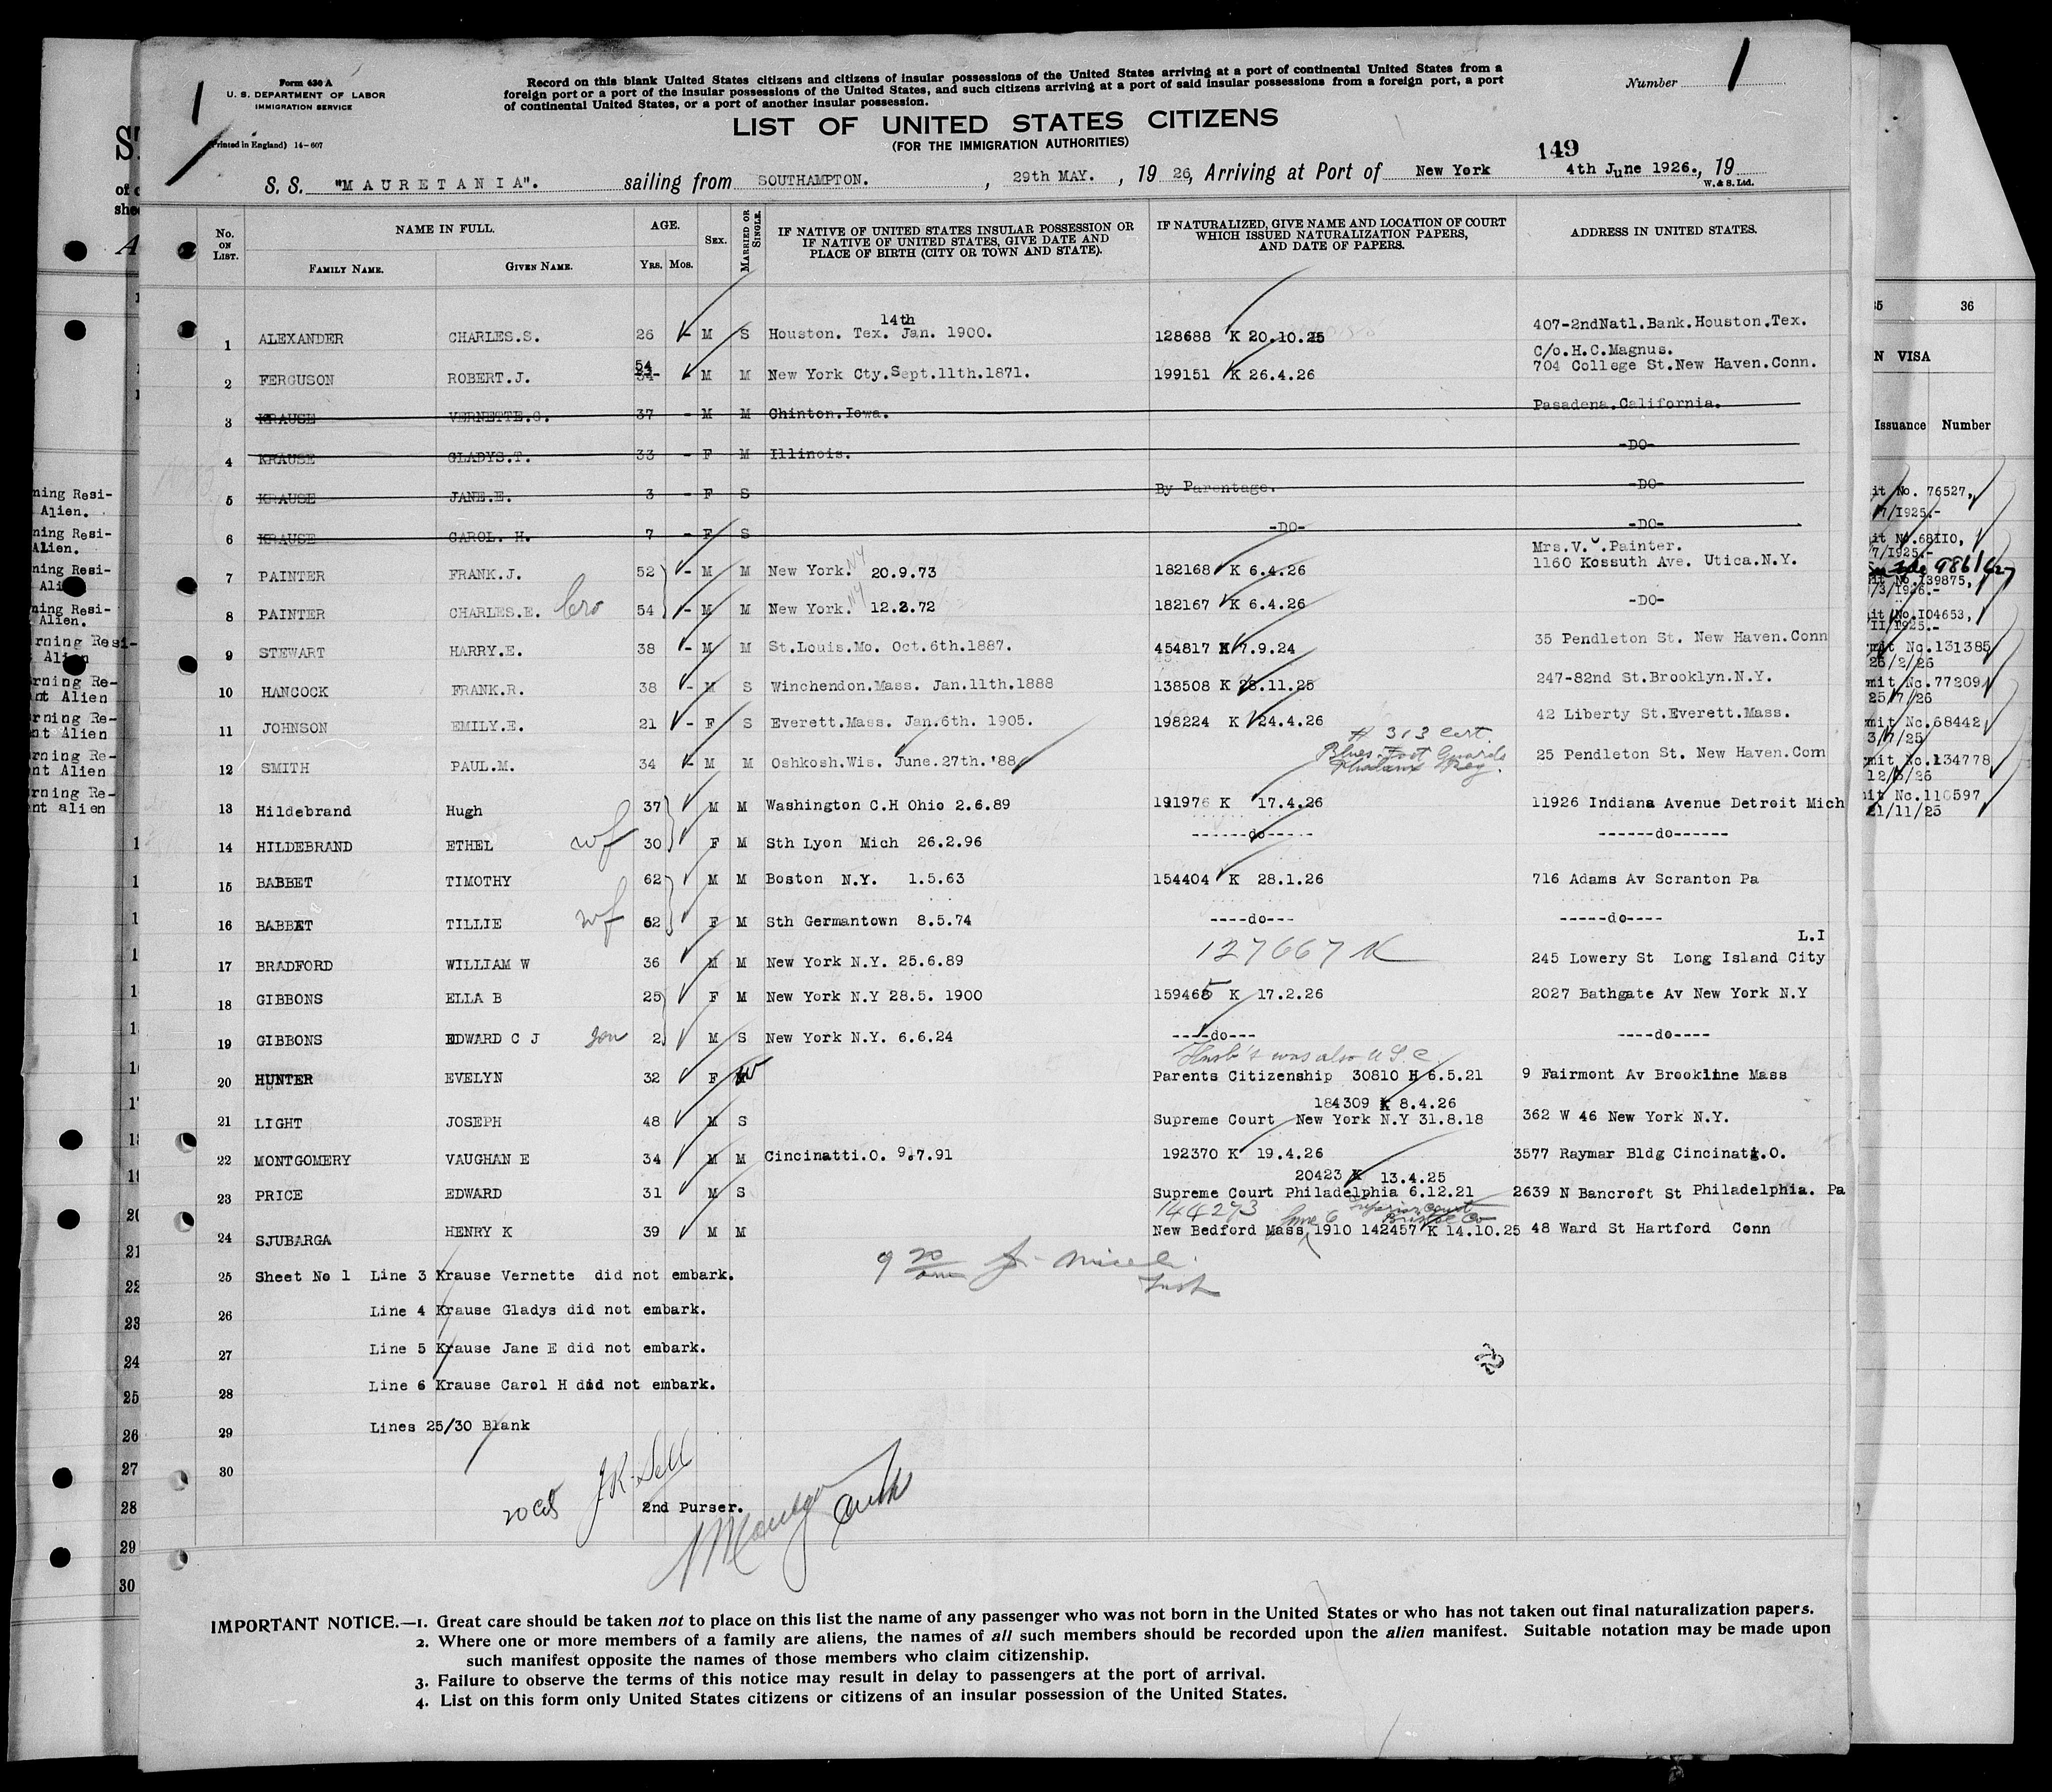 Form 630 A
U. S. DEPARTMENT OF LABOR
IMMIGRATION SERVICE
(Printed in England) 14-607
Record on this blank United States citizens and citizens of insular possessions of the United States arriving at a port of continental United States from a
foreign port or a port of the insular possessions of the United States, and such citizens arriving at a port of said insular possessions from a foreign port, a port
of continental United States, or a port of another insular possession.
Number 1
1
LIST OF UNITED STATES CITIZENS
(FOR THE IMMIGRATION AUTHORITIES)
149
S. S. "MAURETANIA". sailing from SOUTHAMPTON. , 29th MAY. , 19 26, Arriving at Port of New York 4th June 1926., 19
W. & S. Ltd.
No. ON LIST. NAME IN FULL. AGE. SEX. MARRIED OR SINGLE. IF NATIVE OF UNITED STATES INSULAR POSSESSION OR IF NATIVE OF UNITED STATES, GIVE DATE AND PLACE OF BIRTH (CITY OR TOWN AND STATE). IF NATURALIZED, GIVE NAME AND LOCATION OF COURT WHICH ISSUED NATURALIZATION PAPERS, AND DATE OF PAPERS. ADDRESS IN UNITED STATES.
FAMILY NAME. GIVEN NAME. YRS. MOS.
14th
1 ALEXANDER CHARLES.S. 26 - M S Houston. Tex. Jan. 1900. 128688 K 20.10.25 407-2ndNatl.Bank.Houston.Tex.
54 C/o.H.C.Magnus.
2 FERGUSON ROBERT.J. M M New York Cty.Sept.11th.1871. 199151 K 26.4.26 704 College St.New Haven.Conn.
3 KRAUSE VERNETTE.G. 37 - M M Chinton.Iowa. Pasadena.California.
4 KRAUSE GLADYS.T. 33 - F M Illinois. -DO-
5 KRAUSE JANE.E. 3 - F S By Parentage. -DO-
6 KRAUSE CAROL. H. 7 - F S -DO- -DO-
Mrs.V. .Painter.
7 PAINTER FRANK.J. 52 - M M New York. NY 20.9.73 182168 K 6.4.26 1160 Kossuth Ave. Utica.N.Y.
8 PAINTER CHARLES.E. bro 54 - M M New York. NY 12.2.72 182167 K 6.4.26 -DO-
9 STEWART HARRY.E. 38 - M M St.Louis.Mo. Oct.6th.1887. 454817 K 7.9.24 35 Pendleton St. New Haven.Conn
10 HANCOCK FRANK.R. 38 - M S Winchendon.Mass. Jan.11th.1888 138508 K 28.11.25 247-82nd St.Brooklyn.N.Y.
11 JOHNSON EMILY.E. 21 - F S Everett.Mass. Jan.6th. 1905. 198224 K 24.4.26 42 Liberty St.Everett.Mass.
# 313 Cert.
Foot Guards
12 SMITH PAUL.M. 34 - M M Oshkosh.Wis. June.27th.'88 25 Pendleton St. New Haven.Conn
13 Hildebrand Hugh 37 M M Washington C.H Ohio 2.6.89 191976 K 17.4.26 11926 Indiana Avenue Detroit Mich
14 HILDEBRAND ETHEL wf 30 F M Sth Lyon Mich 26.2.96 ------do----- ------do------
15 BABBET TIMOTHY 62 M M Boston N.Y. 1.5.63 154404 K 28.1.26 716 Adams Av Scranton Pa
16 BABBET TILLIE wf 52 F M Sth Germantown 8.5.74 ----do--- -----do----
L.I
17 BRADFORD WILLIAM W 36 M M New York N.Y. 25.6.89 127667 K 245 Lowery St Long Island City
18 GIBBONS ELLA B 25 F M New York N.Y 28.5. 1900 159465 K 17.2.26 2027 Bathgate Av New York N.Y
19 GIBBONS EDWARD C J son 2 M S New York N.Y. 6.6.24 ----do--- ----do----
Husb's was also U S C
20 HUNTER EVELYN 32 F W Parents Citizenship 30810 H 6.5.21 9 Fairmont Av Brookline Mass
184309 K 8.4.26
21 LIGHT JOSEPH 48 M S Supreme Court New York N.Y 31.8.18 362 W 46 New York N.Y.
22 MONTGOMERY VAUGHAN E 34 M M Cincinatti.O. 9.7.91 192370 K 19.4.26 3577 Raymar Bldg Cincinati.O.
20423 K 13.4.25
23 PRICE EDWARD 31 M S Supreme Court Philadelphia 6.12.21 2639 N Bancroft St Philadelphia. Pa
144273 June 6 Superior Court Bristol Co
24 SJUBARGA HENRY K 39 M M New Bedford Mass 1910 142457 K 14.10.25 48 Ward St Hartford Conn
25 Sheet No 1 Line 3 Krause Vernette did not embark.
26 Line 4 Krause Gladys did not embark.
27 Line 5 Krause Jane E did not embark.
28 Line 6 Krause Carol H did not embark.
29 Lines 25/30 Blank
30
J.K. Sell
2nd Purser.
IMPORTANT NOTICE.—1. Great care should be taken not to place on this list the name of any passenger who was not born in the United States or who has not taken out final naturalization papers.
2. Where one or more members of a family are aliens, the names of all such members should be recorded upon the alien manifest. Suitable notation may be made upon
such manifest opposite the names of those members who claim citizenship.
3. Failure to observe the terms of this notice may result in delay to passengers at the port of arrival.
4. List on this form only United States citizens or citizens of an insular possession of the United States.
36
N VISA
Issuance Number
it No. 76527,
7/1925.-
it No.68110,
7/1925.-
it No.139875,
/3/1926.-
it No.104653,
II/1925.-
mit No.131385
26/2/26
mit No.77209
25/7/26
mit No.68442
3/7/25
mit No.134778
12/3/26
it No.110597
21/11/25